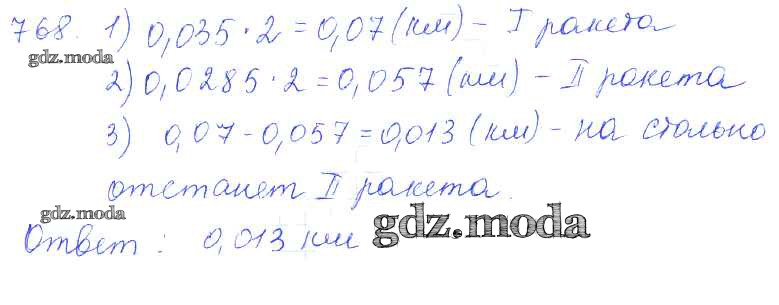 768. 1) 0,035 · 2 = 0,07 (км) – I ракета
gdz.moda
2) 0,0285 · 2 = 0,057 (км) – II ракета
3) 0,07 - 0,057 = 0,013 (км) – на столько
отстанет II ракета.
gdz.moda
Ответ : 0,013 км
gdz.moda